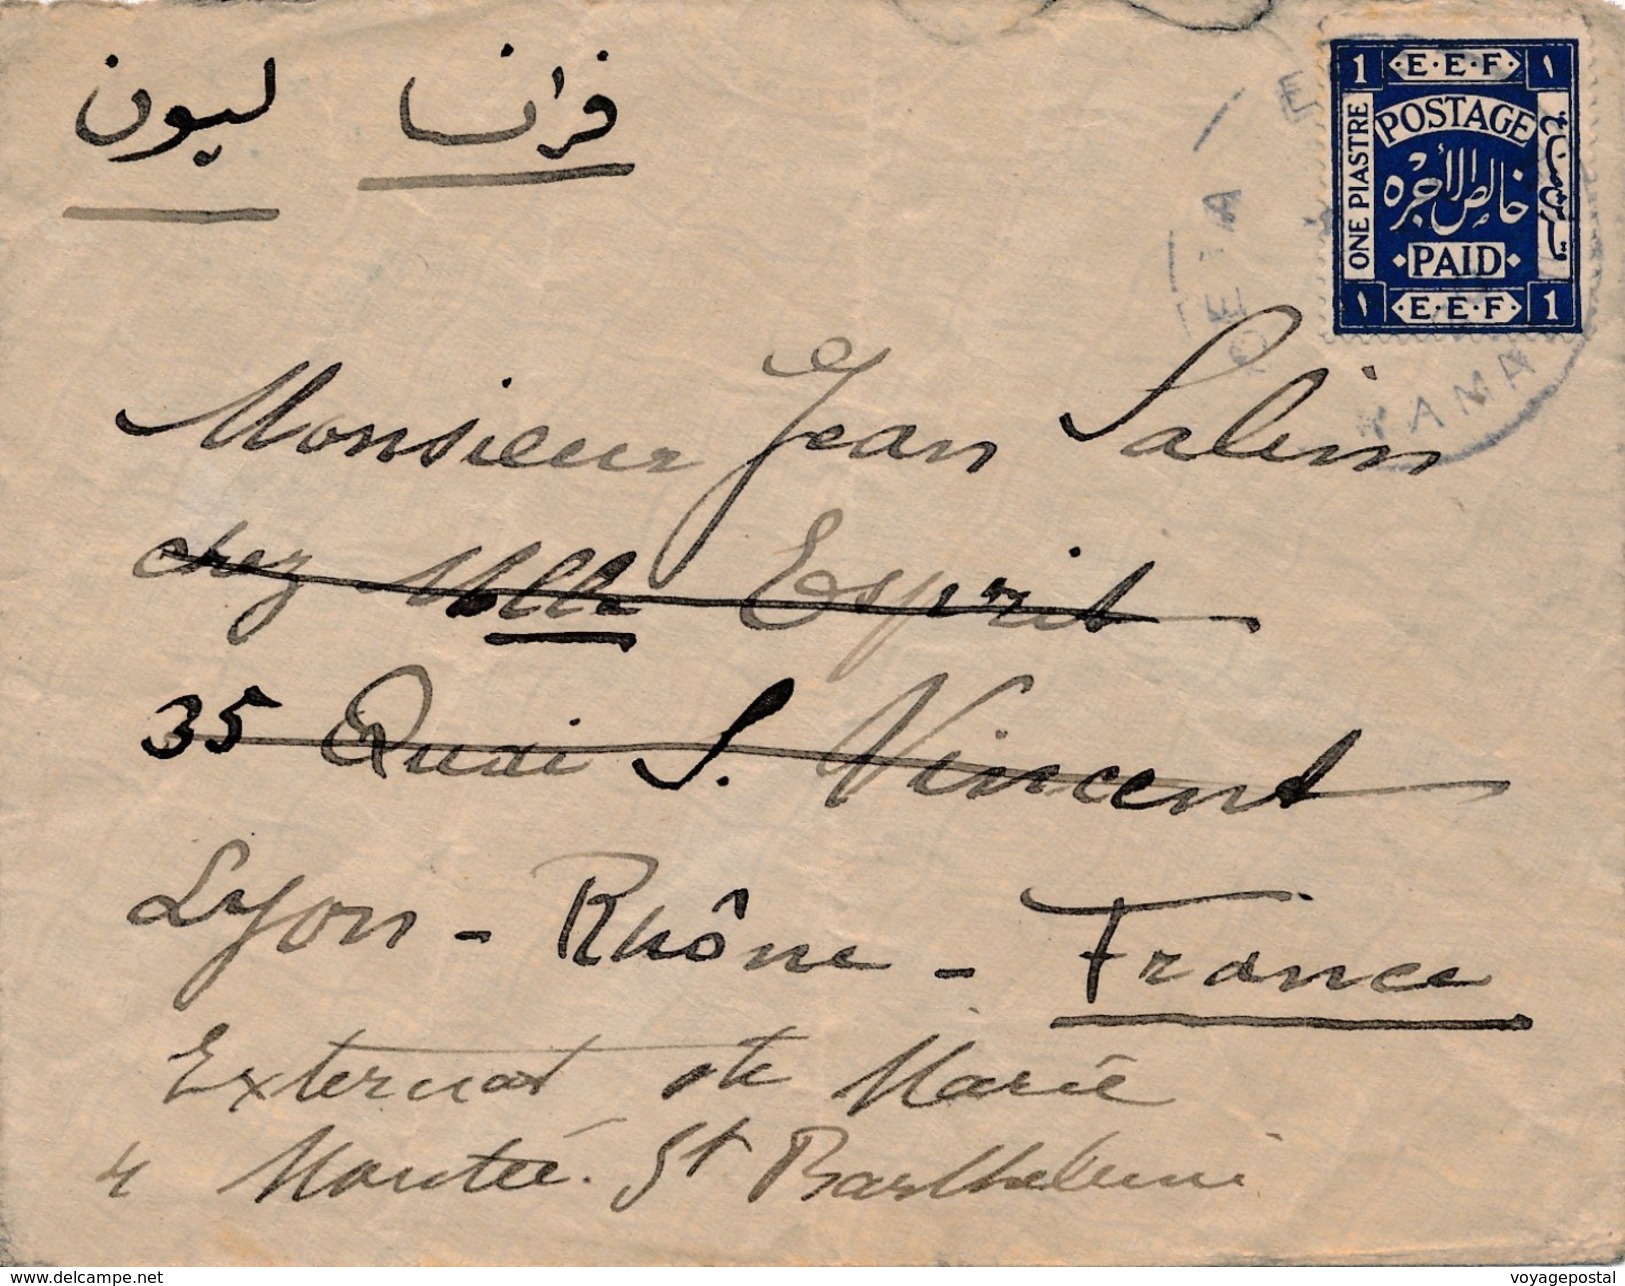 فرانسا ليون
1 E.E.F. ١
POSTAGE
ONE PIASTRE
خالص الأجرة
PAID
١ E.E.F. 1
Monsieur Jean Salim
chez Mlle Esprit
35 Quai S. Vincent
Lyon - Rhône - France
Externat Ste Marie
4 Montée St Barthelemi
www.delcampe.net
voyagepostal